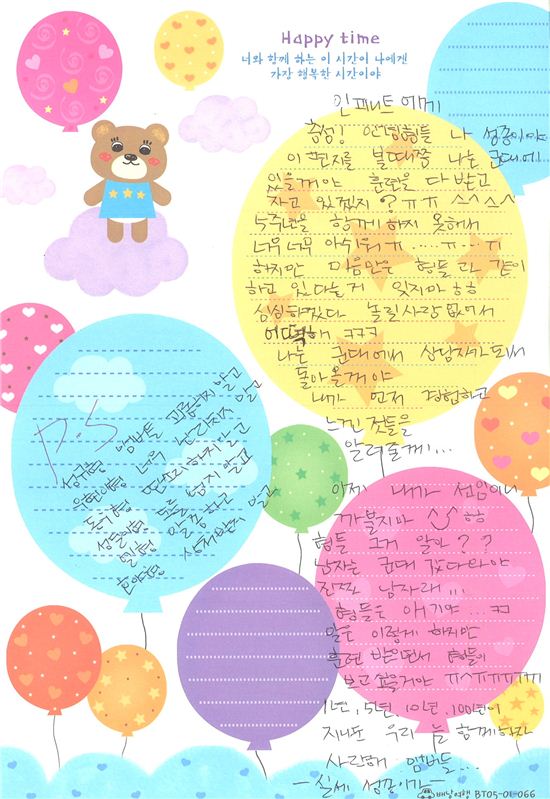 Happy time
너와 함께 하는 이 시간이 나에겐
가장 행복한 시간이야
인패트에게
충성! 안녕형들 나 성종이야
이 편지를 볼때쯤 나는 군대에...
있을꺼야 훈련을 다 받고
자고 있겠지? ㅠㅠ ㅅ^ㅅ^
5주년을 함께 하지 못해서
너무너무 아쉬워ㅠ.....ㅠ..ㅠ
하지만 마음만은 형들과 같이
하고 있다는거 잊지마 ㅎㅎ
심심하겠다 놀릴사람 없어서
어떡해 ㅋㅋㅋ
나는 군대에서 상남자가 되서
돌아올게야
내가 먼저 경험하고
느낀것들을
알려줄께!...
이제 내가 선임이니
까불지마 ㅎㅎ
형들 그거 알아??
남자는 군대 갔다와야
진짜 남자래!...
형들은 애기야...ㅋ
말은 이렇게 하지만
훈련 받으면서 형들이
보고싶을거야 ㅠㅅㅠㅠㅠㅠㅠ
1년, 5년, 10년, 100년이
지나도 우리 늘 함께하자
사랑해 멤버들...
-실세 성종이가-
P.S
성규형 멤버들 괴롭히지 말고
우현이형 너무 난리치지 말고
동우형
성열이형
엘형
호야형 상처받지 말고
배낭여행 BT05-01-066